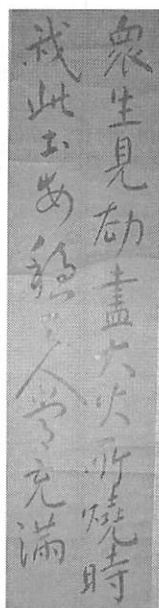 衆生見劫盡大火所燒時
我此土安穩天人常充滿